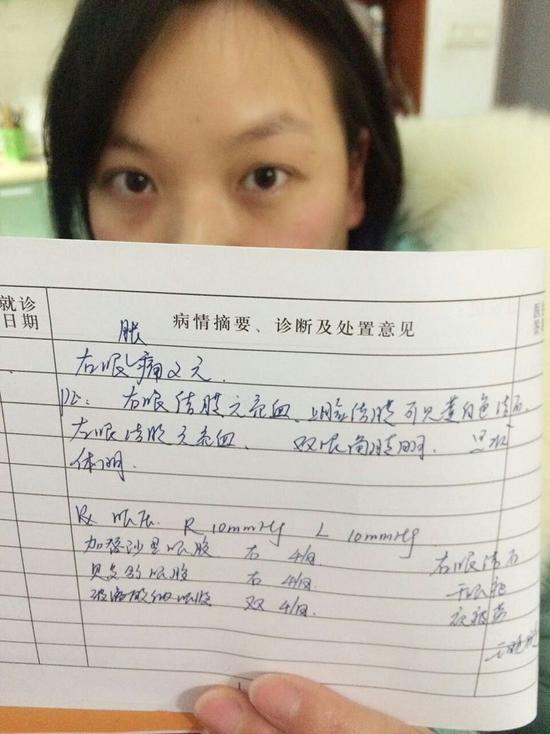 就诊日期 病情摘要、诊断及处置意见
右眼胀痛2天.
PE: 右眼结膜无充血、上睑结膜可见黄白色结石,
左眼结膜无充血. 双眼角膜明.
体明.
Rx 眼压 R 10mmHg L 10mmHg
加替沙星眼 右 4/日 右眼结石
贝复舒眼 右 4/日 干眼
玻璃酸钠眼 双 4/日.